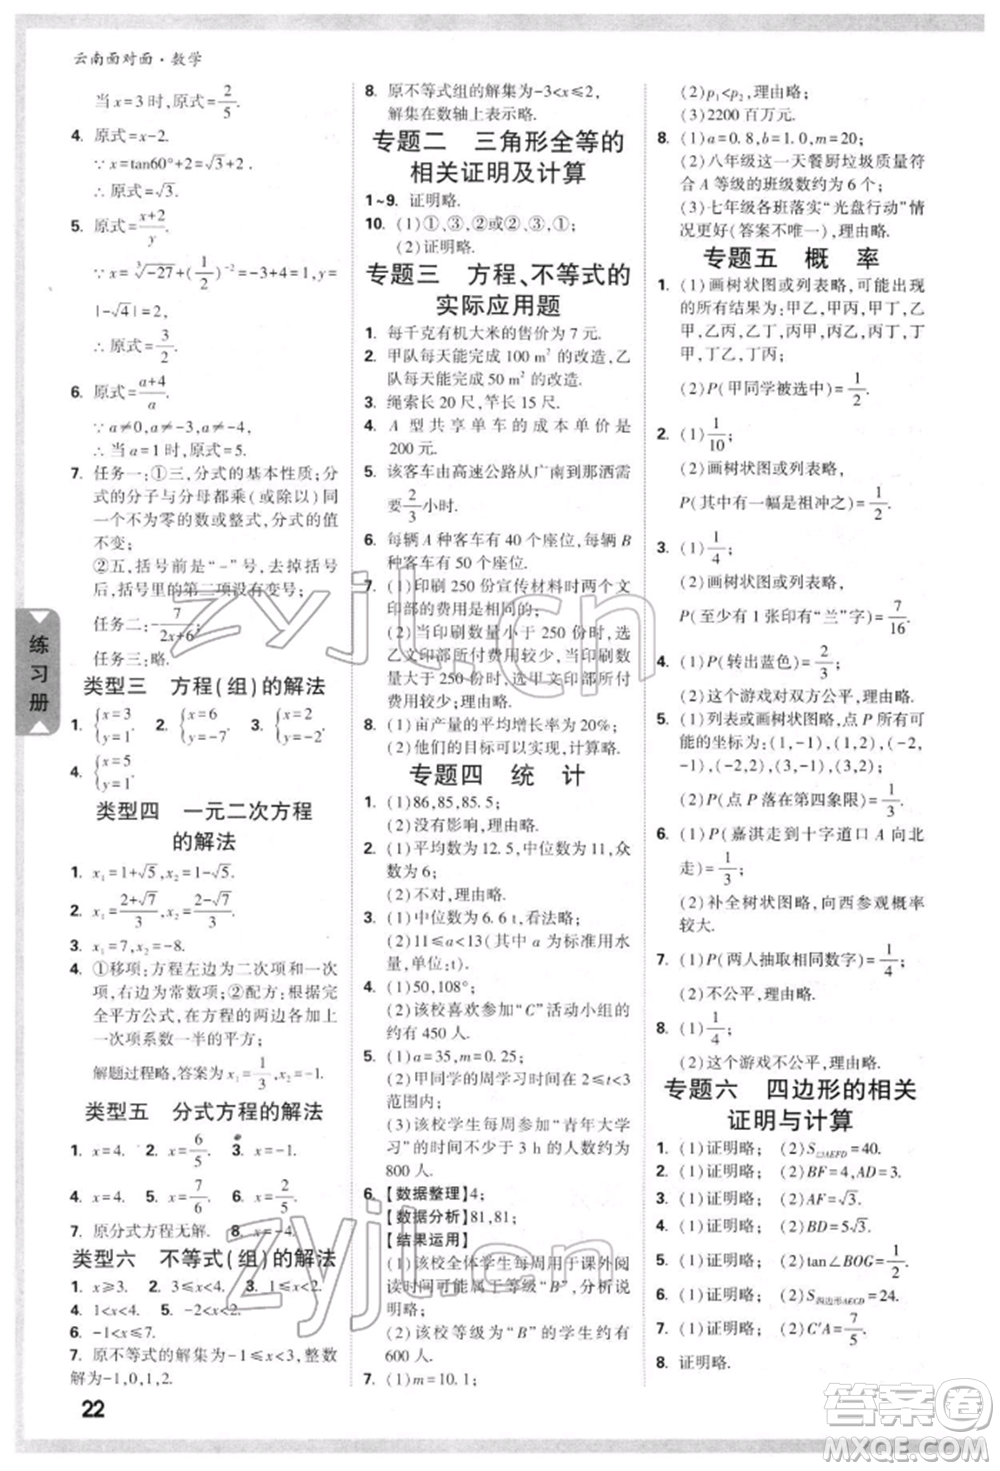 云南面对面·数学
当x=3时,原式=2/5.
4. 原式=x-2.
∵x=tan60°+2=√3+2,
∴原式=√3.
5. 原式=(x+2)/y.
∵x=³√-27+(1/2)⁻²=-3+4=1,y=
|-√4|=2,
∴原式=3/2.
6. 原式=(a+4)/a.
∵a≠0,a≠-4,
∴当a=1时,原式=5.
7. 任务一:①三,分式的基本性质;分
式的分子与分母都乘(或除以)同
一个不为零的数或整式,分式的值
不变;
②五,括号前是“-”号,去掉括号
后,括号里的第二项没有变号;
任务二:-7/(2x+6);
任务三:略.
类型三 方程(组)的解法
1. {x=3 y=1. 2. {x=6 y=-7. 3. {x=1 y=-2.
4. {x=5 y=1.
类型四 一元二次方程
的解法
1. x₁=1+√5,x₂=1-√5.
2. x₁=(2+√7)/3,x₂=(2-√7)/3.
3. x₁=7,x₂=-8.
4. ①移项:方程左边为二次项和一次
项,右边为常数项;②配方:根据完
全平方公式,在方程的两边各加上
一次项系数一半的平方;
解题过程略,答案为x₁=1/3,x₂=-1.
类型五 分式方程的解法
1. x=4. 2. x=6/5. 3. x=1.
4. x=4. 5. x=7/6. 6. x=2/5.
7. 原分式方程无解. 8. x=-4.
类型六 不等式(组)的解法
1. x≥3. 2. 3≤x<4. 3. 1≤x<4.
4. 1<x<4. 5. -2<x<2.
6. -1<x≤7.
7. 原不等式的解集为-1≤x<3,整数
解为-1,0,1,2.
8. 原不等式组的解集为-3<x≤2,
解集在数轴上表示略.
专题二 三角形全等的
相关证明及计算
1~9. 证明略.
10. (1)①,③,②或②,③,①;
(2)证明略.
专题三 方程、不等式的
实际应用题
1. 每千克有机大米的售价为7元.
2. 甲队每天能完成100 m²的改造,乙
队每天能完成50 m²的改造.
3. 绳索长20尺,竿长15尺.
4. A型共享单车的成本单价是
200元.
5. 该客车由高速公路从广南到那洒需
要2/3小时.
6. 每辆A种客车有40个座位,每辆B
种客车有50个座位.
7. (1)印刷250份宣传材料时两个文
印部的费用是相同的;
(2)当印刷数量小于250份时,选择
乙文印部费用较少,当印刷数量大于
250份时,选甲文印部费用较少.
8. (1)亩产量的平均增长率为20%;
(2)他们的目标可以实现,计算略.
专题四 统 计
1. (1)86,85,85.5;
(2)没有影响,理由略.
2. (1)平均数为12.5,中位数为11,众
数为6;
(2)不对,理由略.
3. (1)中位数为6.6 t,看法略;
(2)11≤a<13(其中a为标准用水
量,单位:t).
4. (1)50,108°;
(2)该校喜欢参加“C”活动小组的
约有450人.
5. (1)a=35,m=0.25;
(2)甲同学的周学习时间在2≤t<
3范围内;
(3)该校学生每周参加“青年大学
习”的时间不少于3 h的人数约为
800人.
6. 【数据整理】4;
【数据分析】81,81;
【结果运用】
(1)该校全体学生每周用于课外阅
读时间可能属于等级“B”,原因
说明略;
(2)该校等级为“B”的学生约有
600人.
7. (1)m=10.1;
(2)p₁<p₂,理由略;
(3)2200百万元.
8. (1)a=0.8,b=1.0,m=20;
(2)八年级这一天餐厨垃圾质量
符合A等级的班级数约为6个;
(3)七年级各班落实“光盘行动”情
况更好(答案不唯一),理由略.
专题五 概 率
1. (1)画树状图或列表略,可能出现
的所有结果为:甲乙,甲丙,甲丁,乙
甲,乙丙,乙丁,丙甲,丙乙,丙丁,丁
甲,丁乙,丁丙;
(2)P(甲同学被选中)=1/2.
2. (1)1/10;
(2)画树状图或列表略,
P(其中有一幅是祖冲之)=1/2.
3. (1)1/4;
(2)画树状图或列表略,
P(至少有1张印有“兰”字)=7/16.
4. (1)P(转出蓝色)=2/3;
(2)这个游戏对双方公平,理由略.
5. (1)列表或画树状图略,点P所有可
能的坐标为:(1,-1),(1,2),(-2,
-1),(-2,2),(3,-1),(3,2);
(2)P(点P落在第四象限)=1/3.
6. (1)P(嘉淇走到十字道口A向北
走)=1/3;
(2)补全树状图略,向西参观概率
较大.
7. (1)P(两人抽取相同数字)=1/3;
(2)不公平,理由略.
8. (1)1/4;
(2)这个游戏不公平,理由略.
专题六 四边形的相关
证明与计算
1. (1)证明略; (2)S▱AEFD=40.
2. (1)证明略; (2)BF=4,AD=3.
3. (1)证明略; (2)AF=√3.
4. (1)证明略; (2)BD=5√3.
5. (1)证明略; (2)tan∠BOG=1/2.
6. (1)证明略; (2)S四边形AECD=24.
7. (1)证明略; (2)C′A=7/5.
8. 证明略.
练习册
22
zyjl.cn
zyjl.cn
答案圈
MXQE.COM